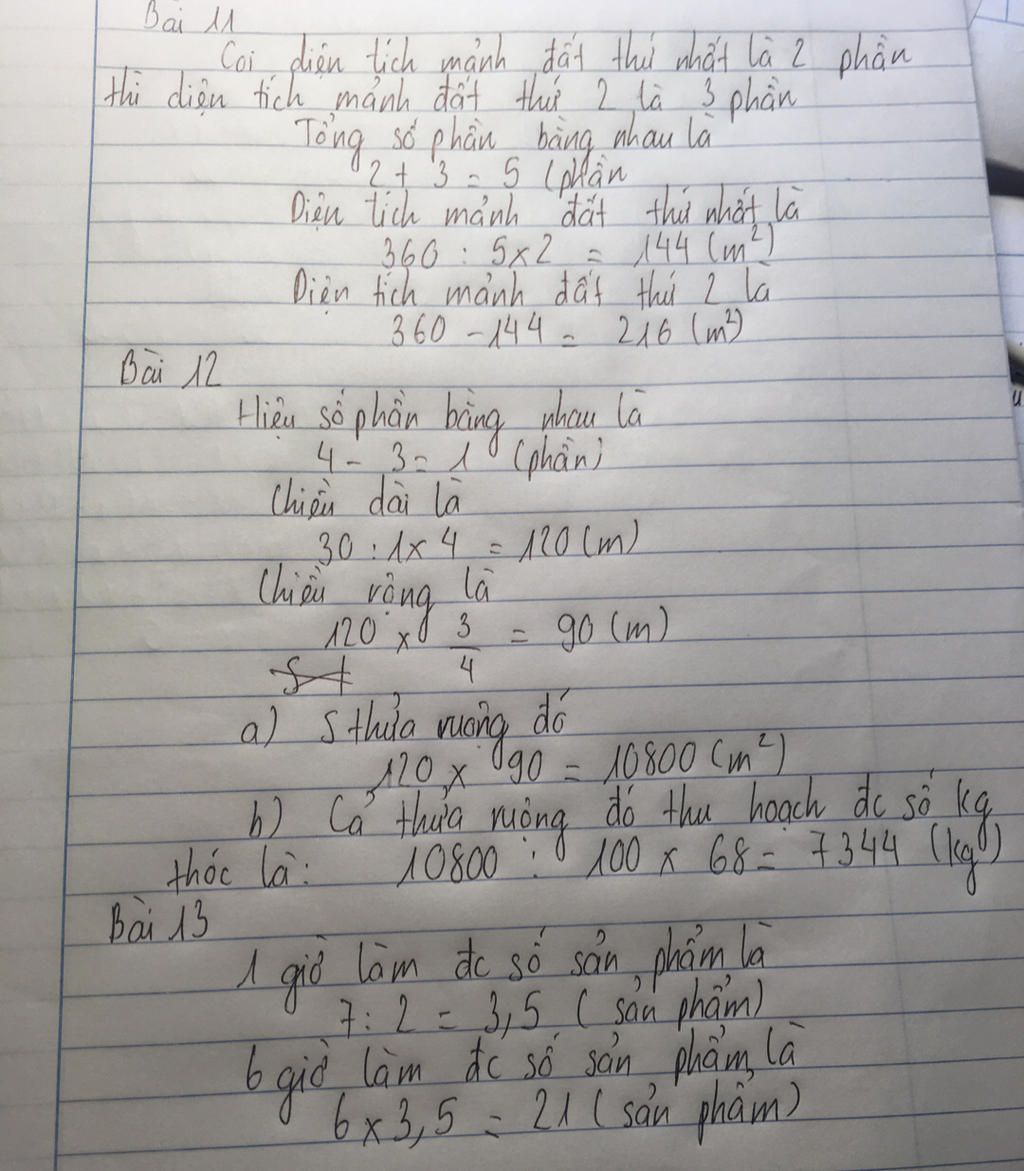 Bài 11
Coi diện tích mảnh đất thứ nhất là 2 phần
thì diện tích mảnh đất thứ 2 là 3 phần
Tổng số phần bằng nhau là
2 + 3 = 5 (phần
Diện tích mảnh đất thứ nhất là
360 : 5 x 2 = 144 (m²)
Diện tích mảnh đất thứ 2 là
360 - 144 = 216 (m²)
Bài 12
Hiệu số phần bằng nhau là
4 - 3 = 1 (phần)
Chiều dài là
30 : 1 x 4 = 120 (m)
Chiều rộng là
120 x 3/4 = 90 (m)
a) S thửa ruộng đó
120 x 90 = 10800 (m²)
b) Cả thửa ruộng đó thu hoạch đc số kg
thóc là: 10800 : 100 x 68 = 7344 (kg)
Bài 13
1 giờ làm đc số sản phẩm là
7 : 2 = 3,5 (sản phẩm)
6 giờ làm đc số sản phẩm là
6 x 3,5 = 21 (sản phẩm)